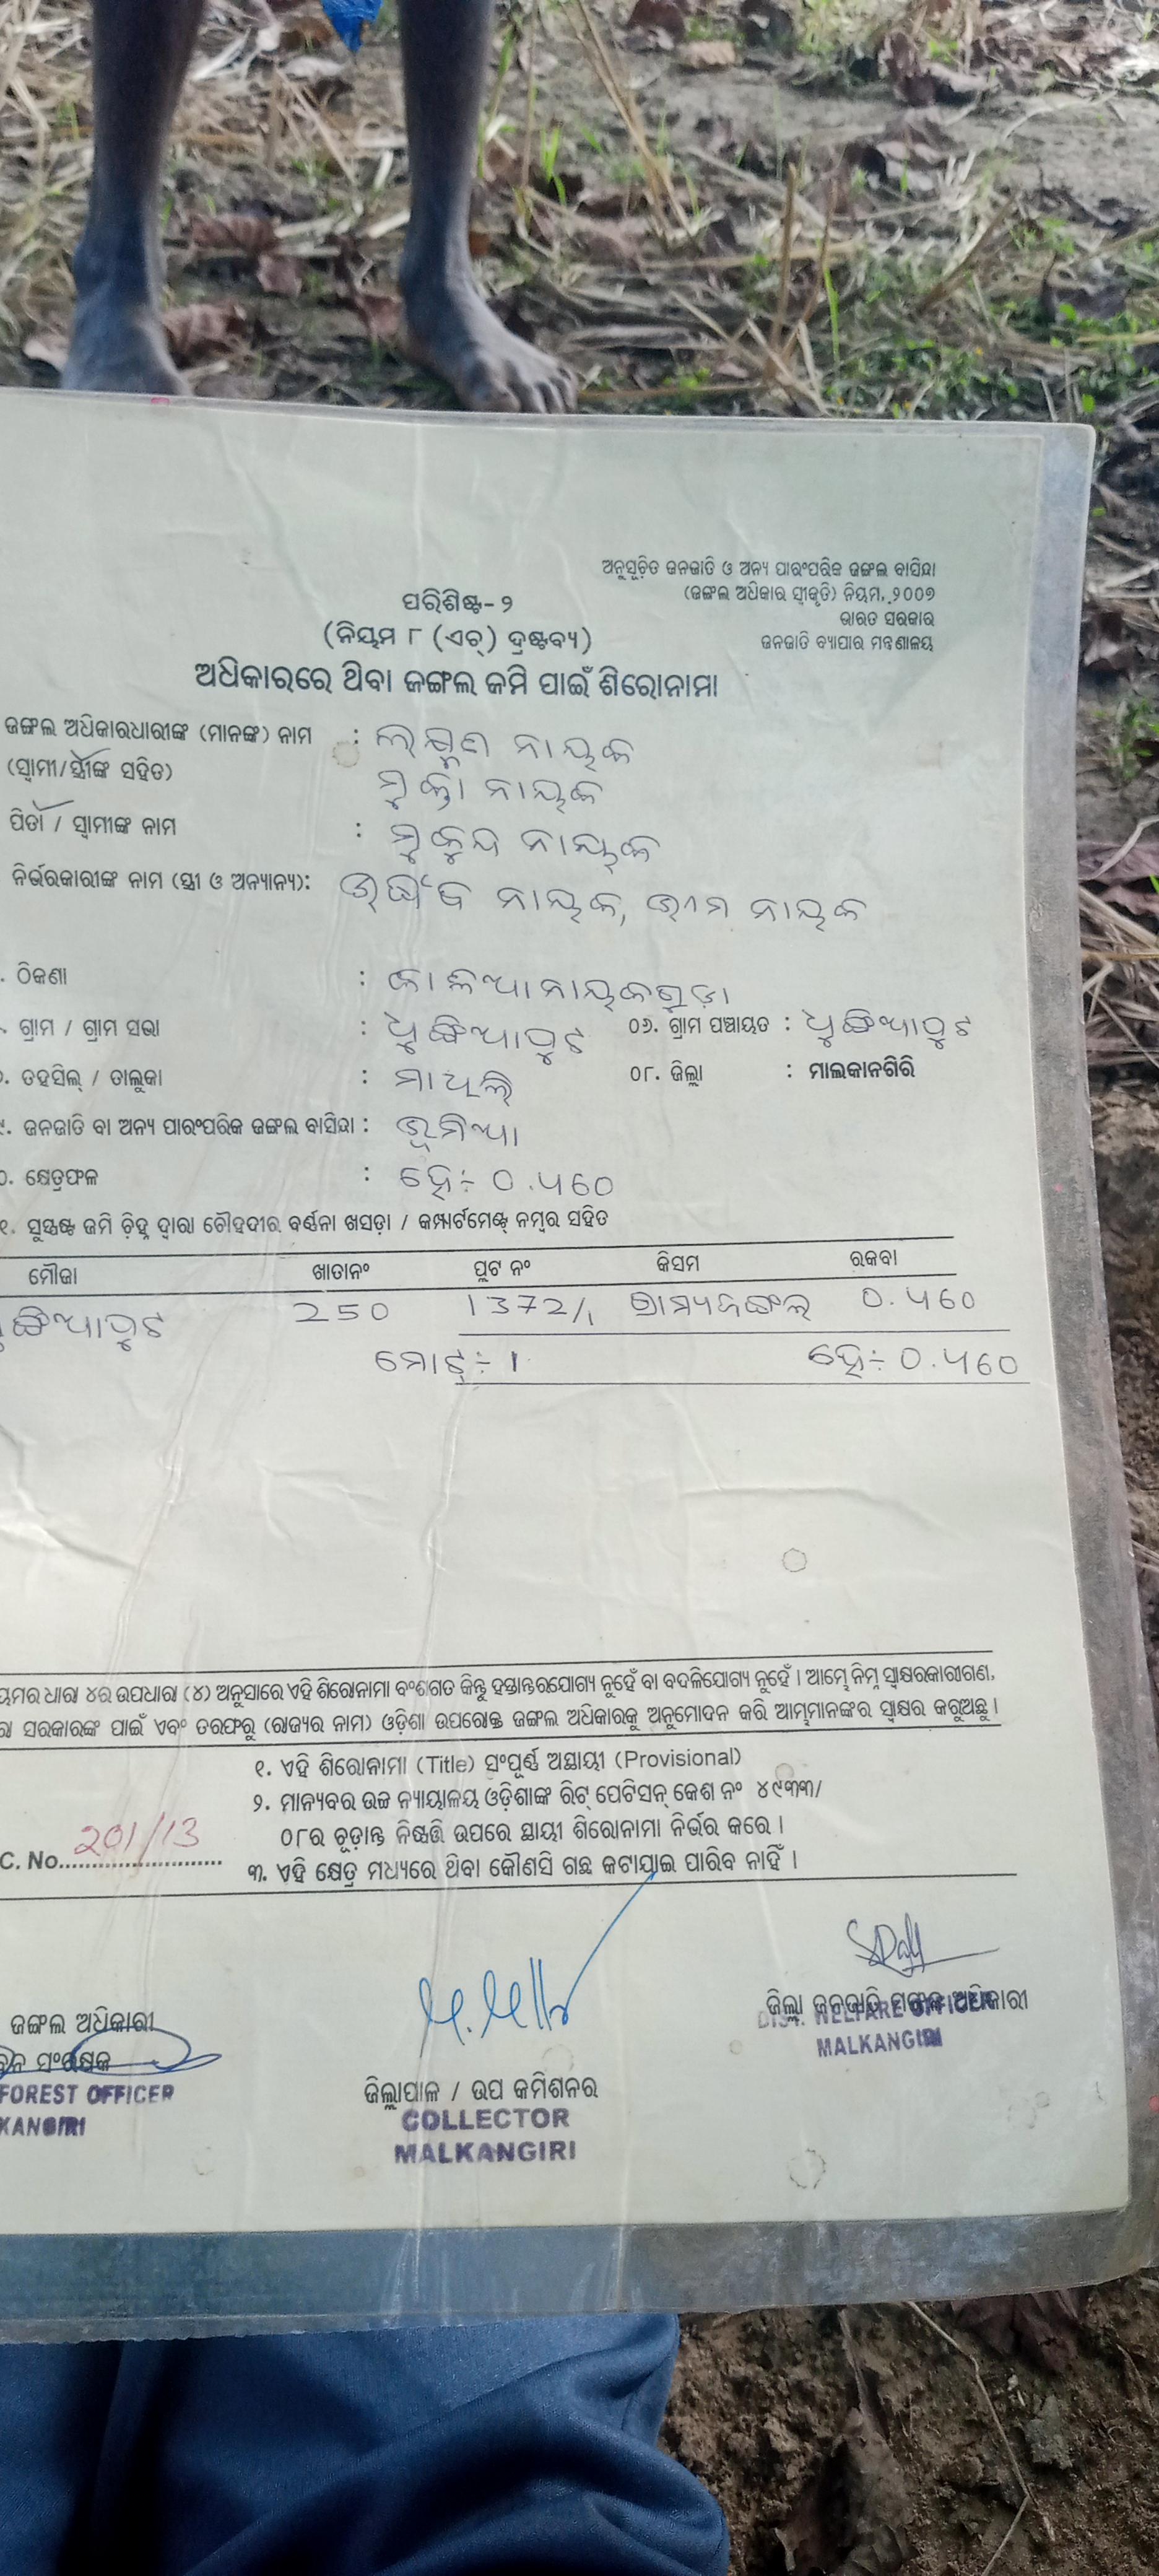 ଅନୁସୂଚିତ ଜନଜାତି ଓ ଅନ୍ୟ ପାରଂପରିକ ଜଙ୍ଗଲ ବାସିନ୍ଦା
(ଜଙ୍ଗଲ ଅଧିକାର ସ୍ୱୀକୃତି) ନିୟମ, ୨୦୦୭
ଭାରତ ସରକାର
ଜନଜାତି ବ୍ୟାପାର ମନ୍ତ୍ରଣାଳୟ
ପରିଶିଷ୍ଟ-୨
(ନିୟମ ୮ (ଏଚ୍) ଦ୍ରଷ୍ଟବ୍ୟ)
ଅଧିକାରରେ ଥିବା ଜଙ୍ଗଲ ଜମି ପାଇଁ ଶିରୋନାମା
ଜଙ୍ଗଲ ଅଧିକାରଧାରୀଙ୍କ (ମାନଙ୍କ) ନାମ : ଲକ୍ଷ୍ମଣ ନାୟକ
(ସ୍ୱାମୀ/ସ୍ତ୍ରୀଙ୍କ ସହିତ) ମୁକ୍ତା ନାୟକ
ପିତା / ସ୍ୱାମୀଙ୍କ ନାମ : ମୁକୁନ୍ଦ ନାୟକ
ନିର୍ଭରକାରୀଙ୍କ ନାମ (ସ୍ତ୍ରୀ ଓ ଅନ୍ୟାନ୍ୟ): ନାୟକ, ଭୀମ ନାୟକ
. ଠିକଣା : କାଳିଆନାୟକଗୁଡ଼ା
ଗ୍ରାମ / ଗ୍ରାମ ସଭା : ଧୁଙ୍ଗିଆପୁଟ ୦୬. ଗ୍ରାମ ପଞ୍ଚାୟତ : ଧୁଙ୍ଗିଆପୁଟ
. ତହସିଲ୍ / ତାଲୁକା : ମାଥିଲି ୦୮. ଜିଲ୍ଲା : ମାଲକାନଗିରି
୯. ଜନଜାତି ବା ଅନ୍ୟ ପାରଂପରିକ ଜଙ୍ଗଲ ବାସିନ୍ଦା : ଭୂମିଆ
୦. କ୍ଷେତ୍ରଫଳ : ହେ÷ 0.460
୧. ସୁସ୍ପଷ୍ଟ ଜମି ଚିହ୍ନ ଦ୍ୱାରା ଚୌହଦୀର ବର୍ଣ୍ଣନା ଖସଡ଼ା / କମ୍ପାର୍ଟମେଣ୍ଟ ନମ୍ବର ସହିତ
ମୌଜା ଖାତାନଂ ପ୍ଲଟ ନଂ କିସମ ରକବା
ଧୁଙ୍ଗିଆପୁଟ 250 1372/1 ଗ୍ରାମ୍ୟଜଙ୍ଗଲ 0.460
ମୋଟ÷ 1 ହେ÷ 0.460
ୟମର ଧାରା ୪ର ଉପଧାରା (୪) ଅନୁସାରେ ଏହି ଶିରୋନାମା ବଂଶଗତ କିନ୍ତୁ ହସ୍ତାନ୍ତରଯୋଗ୍ୟ ନୁହେଁ ବା ବଦଳିଯୋଗ୍ୟ ନୁହେଁ । ଆମ୍ଭେ ନିମ୍ନ ସ୍ୱାକ୍ଷରକାରୀଗଣ,
ରା ସରକାରଙ୍କ ପାଇଁ ଏବଂ ତରଫରୁ (ରାଜ୍ୟର ନାମ) ଓଡ଼ିଶା ଉପରୋକ୍ତ ଜଙ୍ଗଲ ଅଧିକାରକୁ ଅନୁମୋଦନ କରି ଆମ୍ଭମାନଙ୍କର ସ୍ୱାକ୍ଷର କରୁଅଛୁ ।
୧. ଏହି ଶିରୋନାମା (Title) ସଂପୂର୍ଣ୍ଣ ଅସ୍ଥାୟୀ (Provisional)
୨. ମାନ୍ୟବର ଉଚ୍ଚ ନ୍ୟାୟାଳୟ ଓଡ଼ିଶାଙ୍କ ରିଟ୍ ପେଟିସନ୍ କେଶ ନଂ ୪୯୩୩/
୦୮ର ଚୂଡ଼ାନ୍ତ ନିଷ୍ପତ୍ତି ଉପରେ ସ୍ଥାୟୀ ଶିରୋନାମା ନିର୍ଭର କରେ ।
C. No. 201/13
୩. ଏହି କ୍ଷେତ୍ର ମଧ୍ୟରେ ଥିବା କୌଣସି ଗଛ କଟାଯାଇ ପାରିବ ନାହିଁ ।
ଜିଲ୍ଲା ଜନଜାତି ମଙ୍ଗଳ ଅଧିକାରୀ
DIST. WELFARE OFFICER
MALKANGIRI
ଜଙ୍ଗଲ ଅଧିକାରୀ
ବନ ସଂରକ୍ଷକ
FOREST OFFICER
KANGIRI
ଜିଲ୍ଲାପାଳ / ଉପ କମିଶନର
COLLECTOR
MALKANGIRI